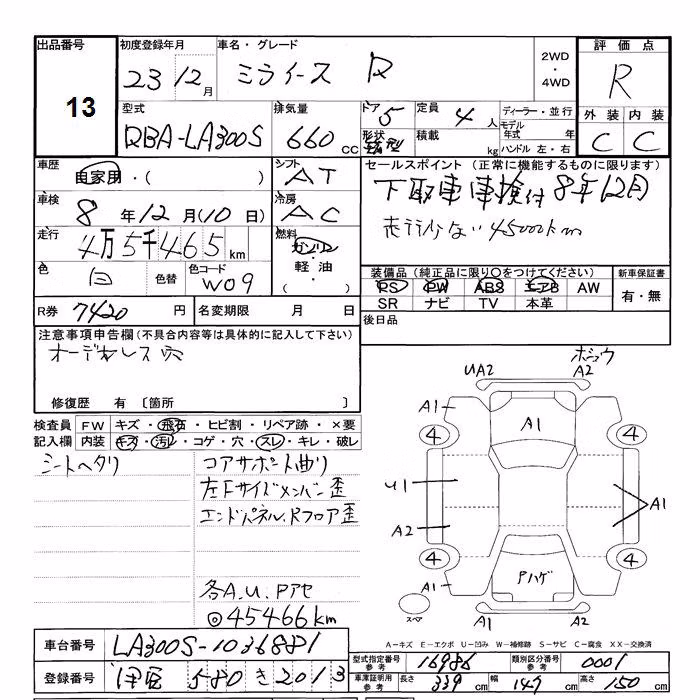 出品番号
13
初度登録年月
23 12月
車名・グレード
ミライース
2WD
・
4WD
評価点
R
外装 内装
C C
型式
DBA-LA300S
排気量
660 cc
ドア 5
形状
定員 4 人
積載 kg
ディーラー・並行
モデル
年式 年
ハンドル 左・右
車歴
自家用・( )
シフト
AT
セールスポイント (正常に機能するものに限ります)
下取車 車検付 8年12月
走行少ない 45000km
車検
8年12月(10日)
冷房
AC
走行
4万5千465km
燃料
ガソリン
軽油
・
( )
色
白
色替
色コード
W09
装備品 (純正品に限り〇をつけてください)
PS PW ABS エアB AW
SR ナビ TV 本革
新車保証書
有・無
R券 7420 円
名変期限 月 日
後日品
注意事項申告欄 (不具合内容等は具体的に記入して下さい)
オーディオレス 穴
修復歴 有 〔箇所 〕
検査員
記入欄
FW キズ・飛石・ヒビ割・リペア跡・×要
内装 キズ・汚レ・コゲ・穴・スレ・キレ・破レ
シートヘタリ
コアサポート曲り
左Fサイドメンバー歪
エンドパネル、Rフロア歪
各A.U.Pアセ
◎45466km
ホシュウ
UA2 A2
A1 A1
4 4
U1
A1
A2
4 4
A1 Pハゲ
スペア
A2 A2
A-キズ E-エクボ U-凹み W-補修跡 S-サビ C-腐食 XX-交換済
車台番号 LA300S-1036881
登録番号 580 き 2013
型式指定番号
参考
16986
類別区分番号
参考
0001
車庫証明用
参考
長さ 339 cm
幅 147 cm
高さ 150 cm